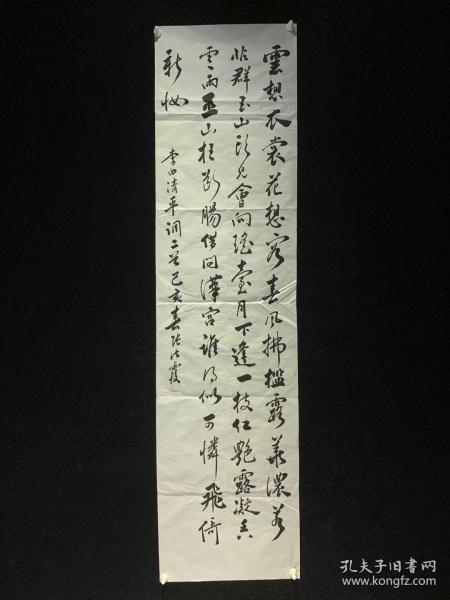 雲想衣裳花想容春風拂檻露華濃若
非群玉山頭見會向瑤臺月下逢一枝红艷露凝香
雲雨巫山枉斷腸借問漢宮誰得似可憐飛倚
新妝
李白清平調二首己亥春張法霞
孔夫子旧书网
www.kongfz.com